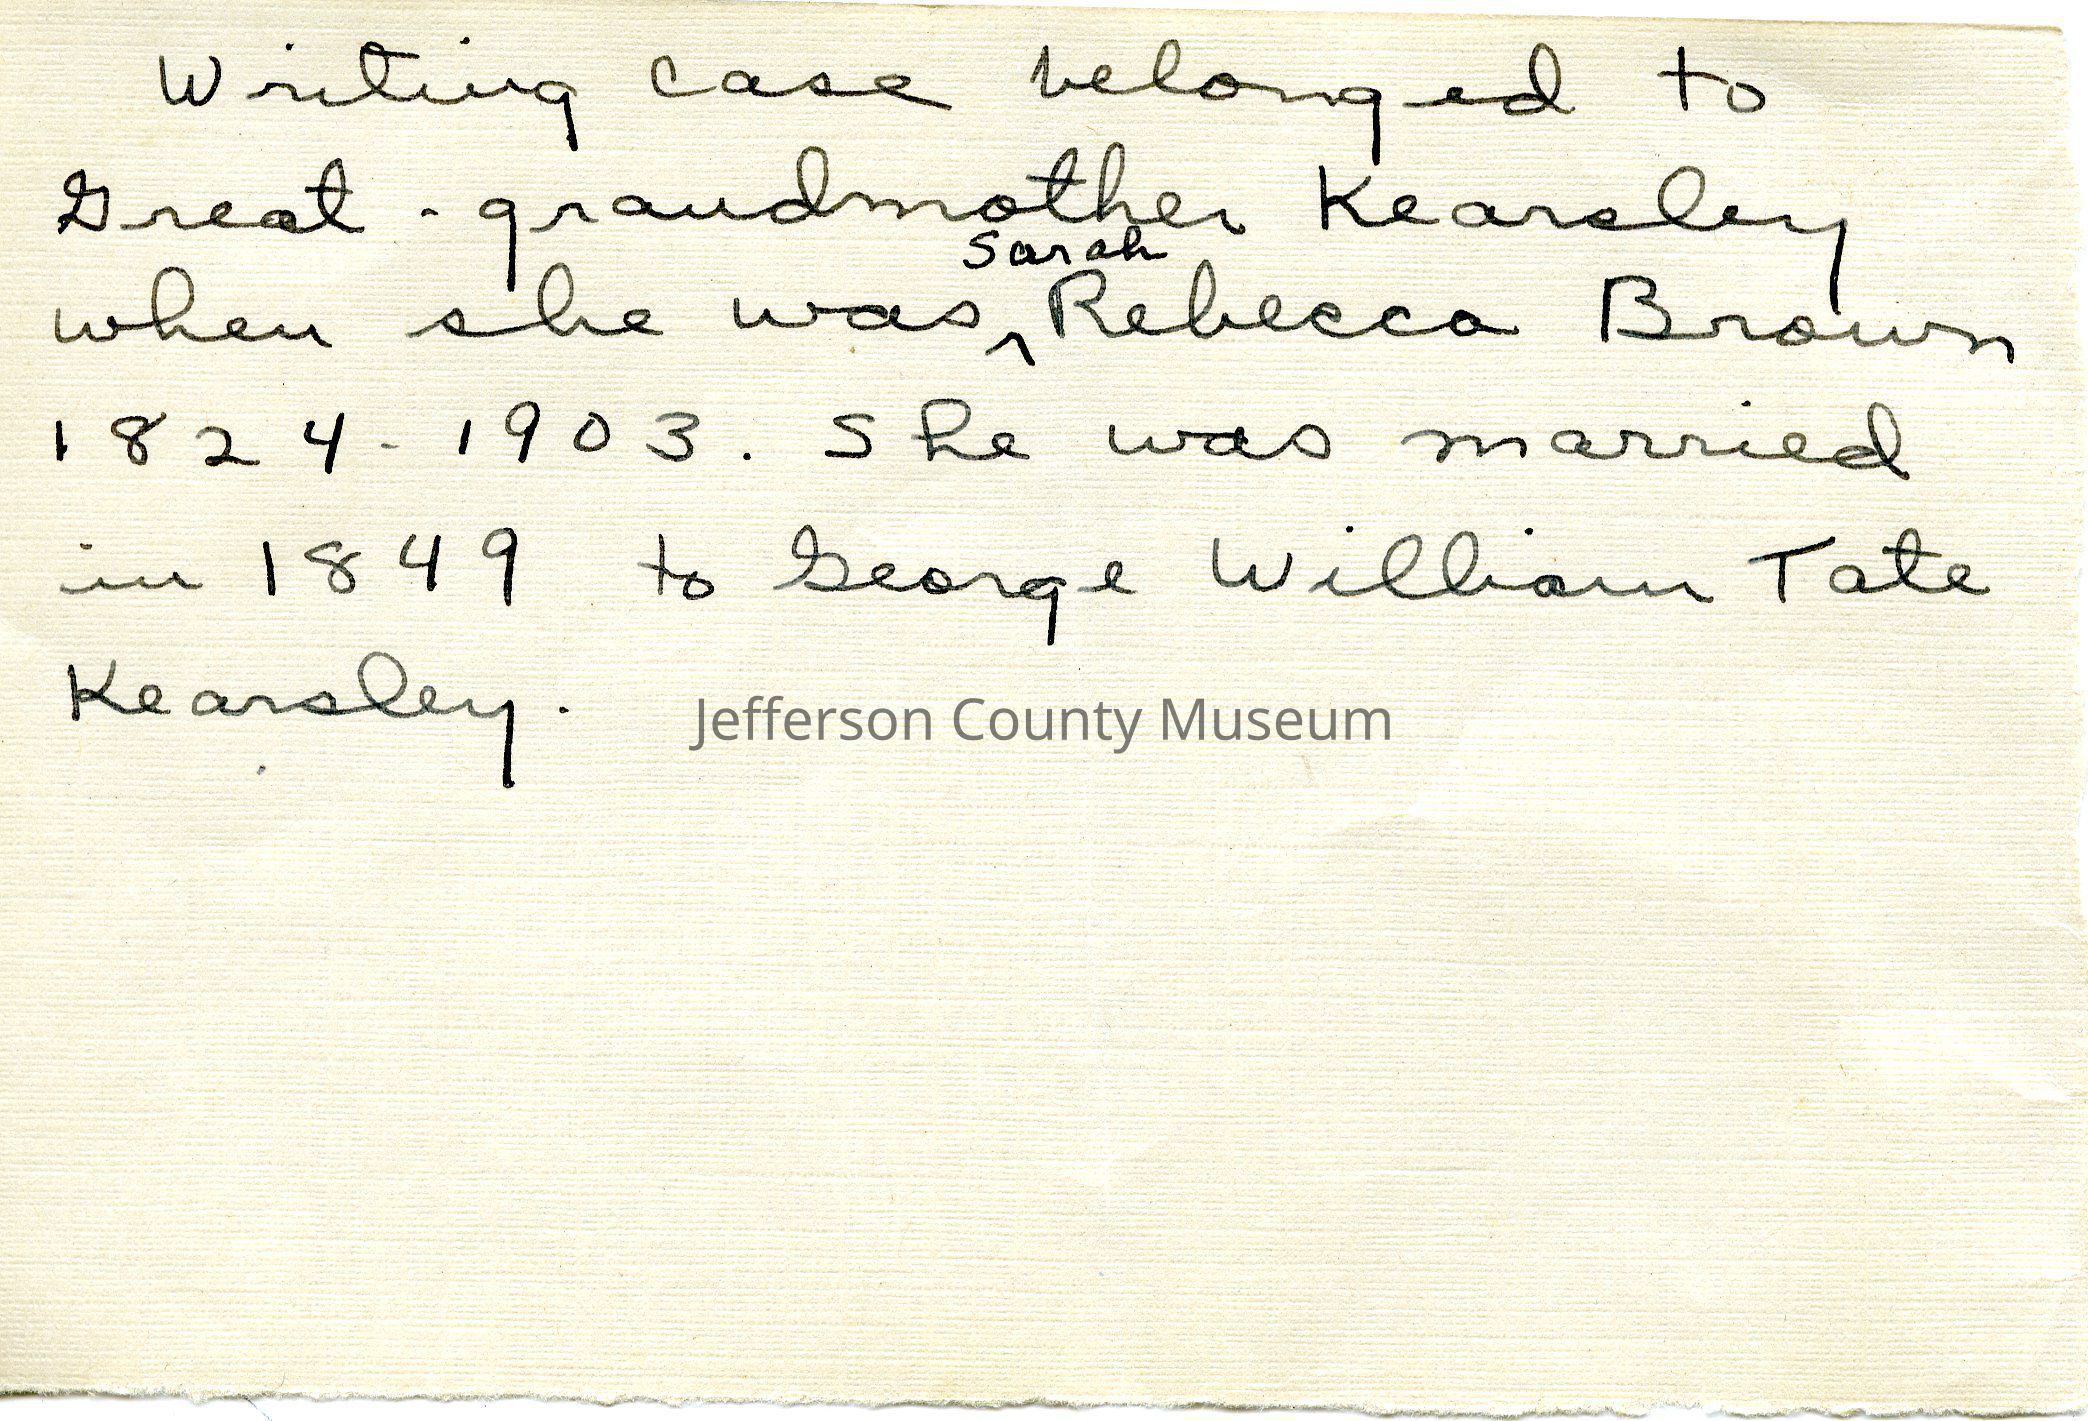 Writing case belonged to
Great-grandmother Kearsley
Sarah
when she was ‸ Rebecca Brown
1824-1903. She was married
in 1849 to George William Tate
Kearsley.
Jefferson County Museum